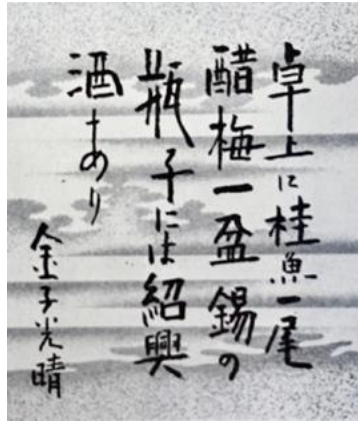 卓上に桂魚一尾
醋梅一盆錫の
瓶子には紹興
酒もあり
金子光晴